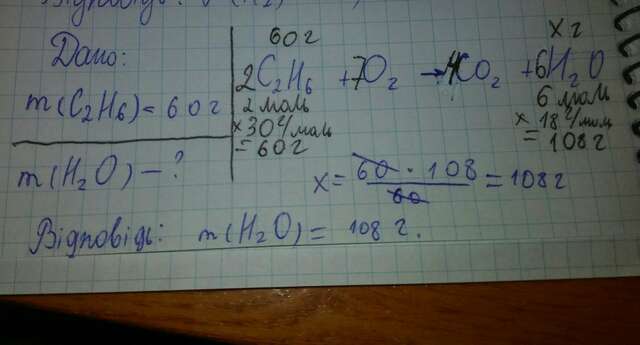 Дано:
m(C₂H₆) = 60 г
m(H₂O) – ?
60 г
x г
2C₂H₆ + 7O₂ → 4CO₂ + 6H₂O
2 моль
6 моль
× 30 г/моль
× 18 г/моль
= 60 г
= 108 г
x = 60 · 108 / 60 = 108 г
Відповідь: m(H₂O) = 108 г.